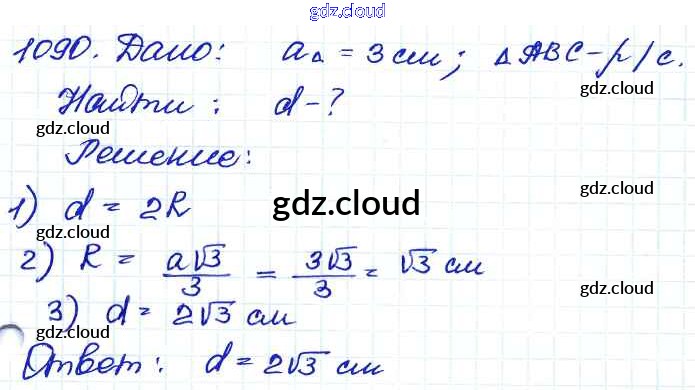 gdz.cloud
1090. Дано: a△ = 3 см; △ABC – р/с.
gdz.cloud
Найти: d – ?
gdz.cloud
gdz.cloud
Решение:
gdz.cloud
1) d = 2R
gdz.cloud
gdz.cloud
2) R = a√3/3 = 3√3/3 = √3 см
gdz.cloud
3) d = 2√3 см
gdz.cloud
gdz.cloud
Ответ: d = 2√3 см